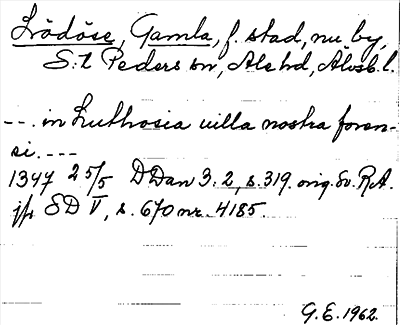 Lödöse, Gamla, f. stad, nu by,
S:t Peders sn, Ale hd, Älvsb. l.
--- in Luthosia uilla nostra foren-
si. ---
1347 25/5 DDan 3:2, s. 319. orig. Sv. R.A.
jfr SD V, s. 670 nr. 4185.
G.E. 1962.